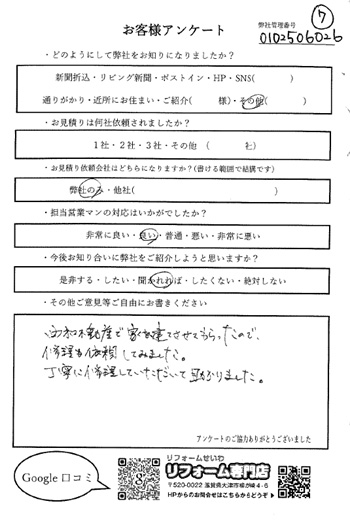 ⑦
お客様アンケート
弊社管理番号
0102506026
・どのようにして弊社をお知りになりましたか?
新聞折込・リビング新聞・ポストイン・HP・SNS( )
通りがかり・近所にお住まい・ご紹介( 様)・その他( )
・お見積りは何社依頼されましたか?
1社・2社・3社・その他 ( 社)
・お見積り依頼会社はどちらになりますか?(書ける範囲で結構です)
弊社のみ・他社( )
・担当営業マンの対応はいかがでしたか?
非常に良い・良い・普通・悪い・非常に悪い
・今後お知り合いに弊社をご紹介しようと思いますか?
是非する・したい・聞かれれば・したくない・絶対しない
・その他ご意見等ご自由にお書きください
不動産で家を建てさせてもらったので、
修理も依頼してみました。
丁寧に修理していただいて助かりました。
アンケートのご協力ありがとうございました
Google 口コミ
リフォームせいわ
リフォーム専門店
〒520-0022 滋賀県大津市柳が崎4-6
HPからのお問合せはこちらからどうぞ